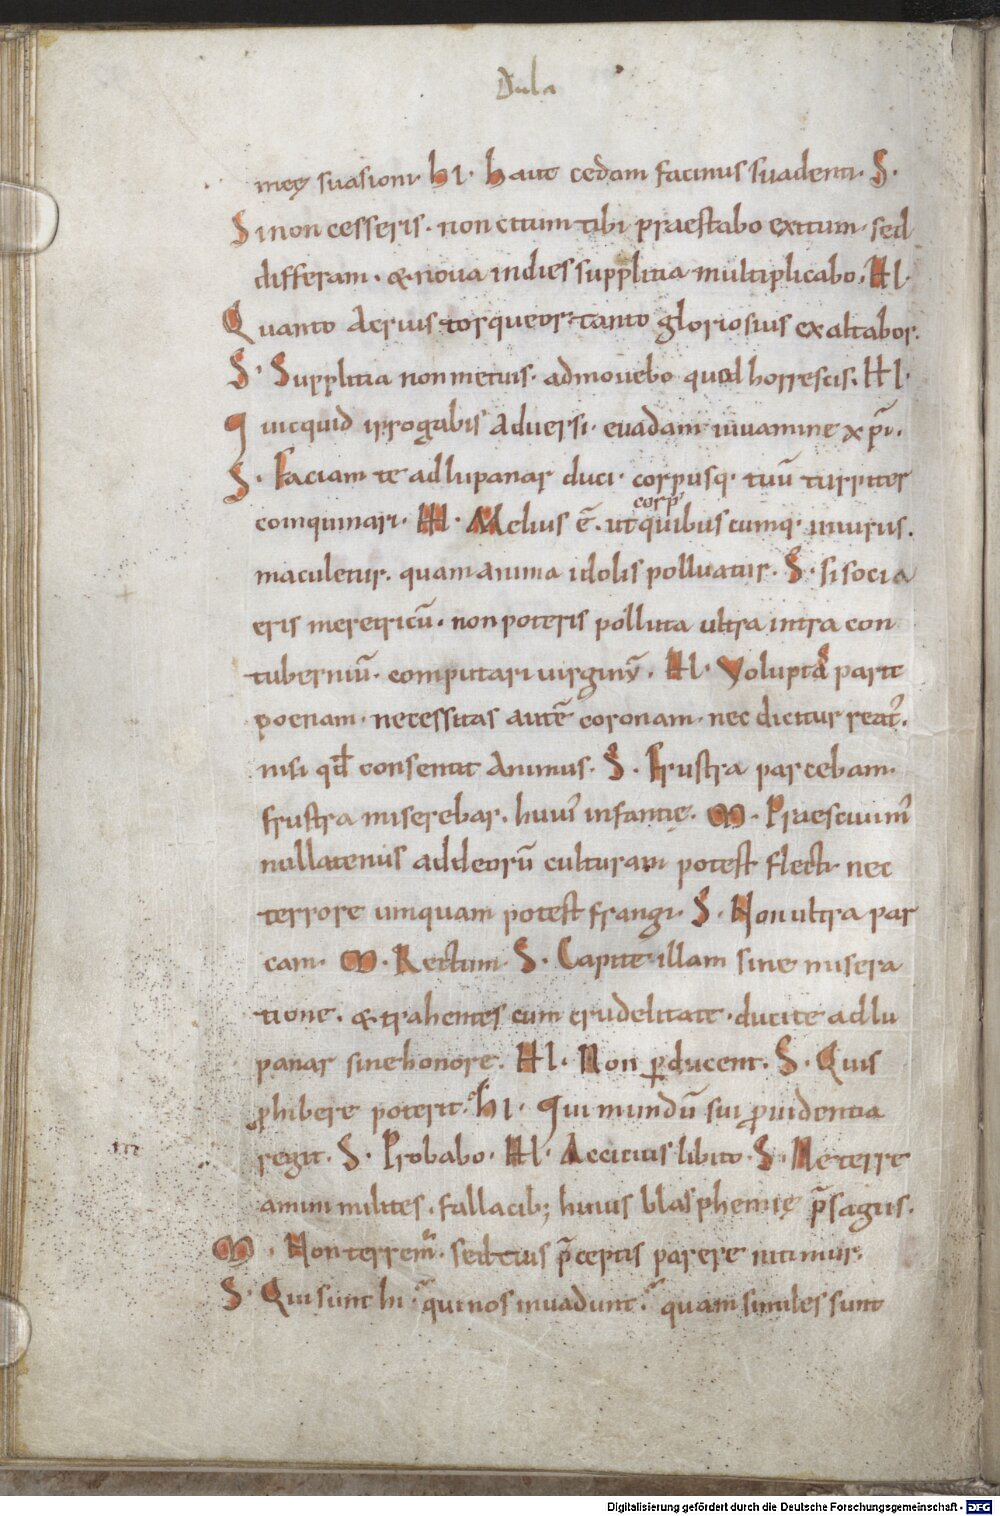 Dula
meę suasioni. hI. Haut cedam facinus suadenti. S.
Si non cesseris. non citum tibi praestabo exitum. sed
differam. & noua indies supplitia multiplicabo. HI.
Quanto acrius torqueor. tanto gloriosius exaltabor.
S. Supplitia non metuis. admouebo quod horrescis. HI.
Quicquid irrogabis aduersi. euadam iuuamine xp̄i.
S. Faciam te ad lupanar duci. corpusq. tuū turpiter
coinquinari. HI. Melius ē. ut quibuscumq. iniuriis.
corp'
maculetur. quam anima idolis polluatur. S. si socia
eris meretricū. non poteris polluta ultra intra con
tuberniū. computari uirginū. HI. Voluptas parit
poenam. necessitas autē coronam. nec dicitur reat'.
nisi qd̄ consentit animus. S. Frustra parcebam.
frustra miserebar. hui' infantię. M. Praesciuim'
nullatenus ad deorū culturam potest flecti. nec
terrore umquam potest frangi. S. Non ultra par
cam. M. Rectum. S. Capite illam sine misera
tione. & trahentes cum crudelitate. ducite ad lu
panar sine honore. HI. Non ꝑducent. S. Quis
ꝓhibere poterit. hI. Qui mundū sui ꝓuidentia
regit. S. Probabo. HI. Accitius libito. S. Ne terre
amini milites. fallacib; huius blasphemię p̄sagiis.
M. Non terrem'. sed tuis p̄ceptis parere nitimur.
S. Qui sunt hi. qui nos inuadunt. quam similes sunt